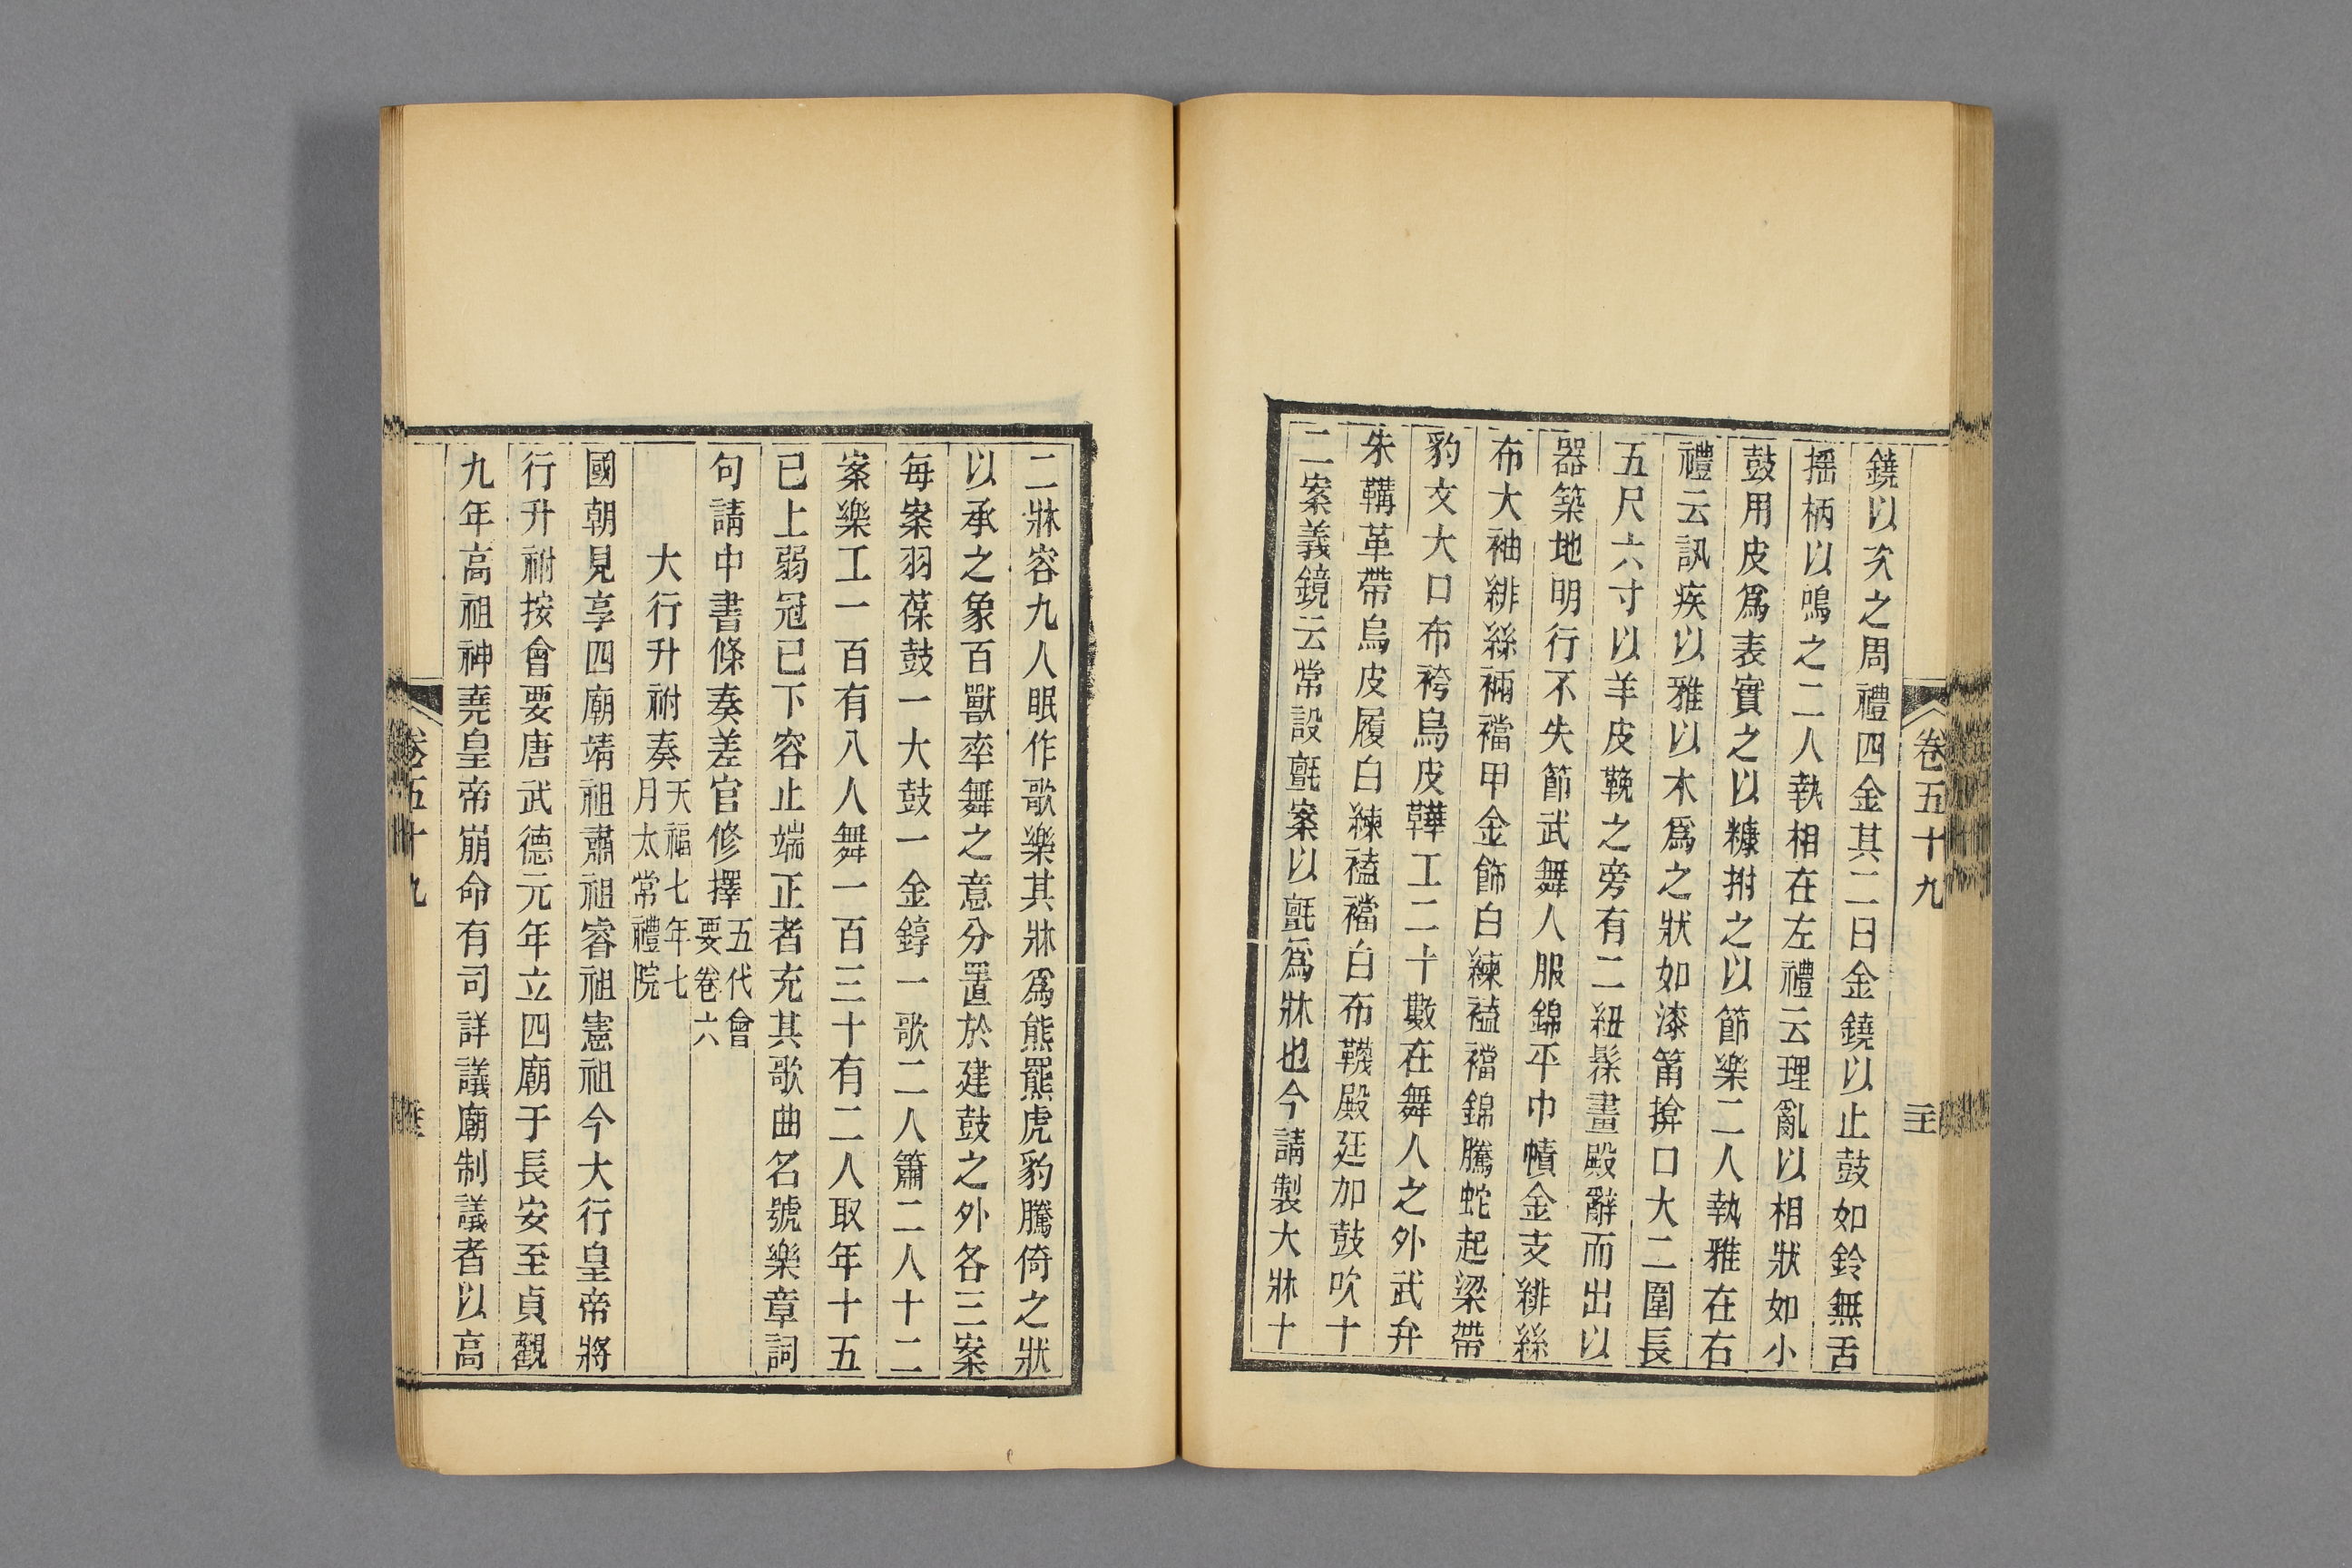 卷五十九
鐃以次之周禮四金其二曰金鐃以止鼓如鈴無舌
摇柄以鳴之二人執相在左禮云理亂以相狀如小
鼓用皮爲表實之以糠拊之以節樂二人執雅在右
禮云訊疾以雅以木爲之狀如漆筩揜口大二圍長
五尺六寸以羊皮鞔之旁有二紐髹畫殿辭而出以
器築地明行不失節武舞人服錦平巾幘金支緋絲
布大袖緋絲裲襠甲金飾白練䘸襠錦騰蛇起梁帶
豹文大口布袴烏皮鞾工二十數在舞人之外武弁
朱鞲革帶烏皮履白練䘸襠白布韈殿廷加鼓吹十
二案義鏡云常設氈案以氈爲牀也今請製大牀十
二牀容九人眠作歌樂其牀爲熊羆虎豹騰倚之狀
以承之象百獸率舞之意分置於建鼓之外各三案
每案羽葆鼓一大鼓一金錞一歌二人簫二人十二
案樂工一百有八人舞一百三十有二人取年十五
已上弱冠已下容止端正者充其歌曲名號樂章詞
句請中書條奏差官修擇五代會要卷六
大行升祔奏天福七年七月太常禮院
國朝見享四廟靖祖肅祖睿祖憲祖今大行皇帝將
行升祔按會要唐武德元年立四廟于長安至貞觀
九年高祖神堯皇帝崩命有司詳議廟制議者以高
卷五十九